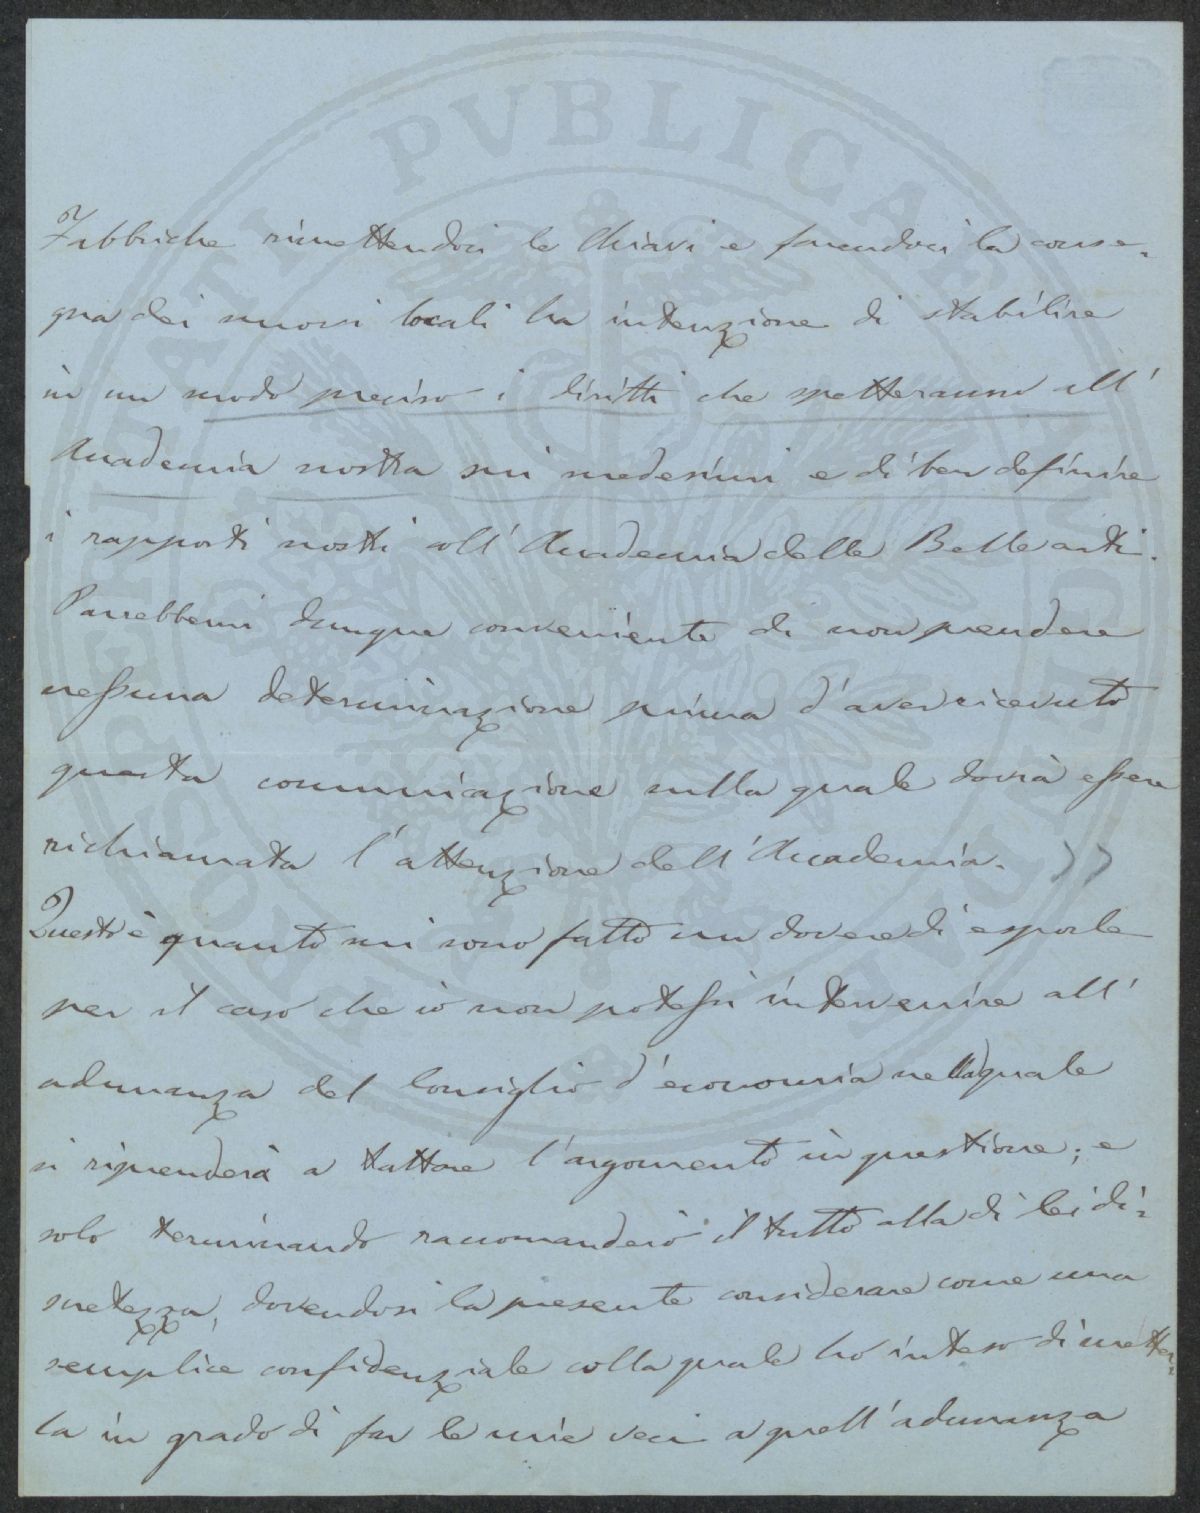 Fabbriche rimettendoci le Chiavi e facendoci la conse-
gna dei nuovi locali ha intenzione di stabilire
in un modo preciso i diritti che spetteranno all'
Accademia nostra sui medesimi e di ben definire
i rapporti nostri coll'Accademia delle Belle arti.
Parrebbemi dunque conveniente di non prendere
nessuna determinazione prima d'aver ricevuto
questa comunicazione sulla quale dovrà essere
richiamata l'attenzione dell'Accademia. ))
Questo è quanto mi sono fatto un dovere di esporle
per il caso che io non potessi intervenire all'
adunanza del Consiglio d'economia nella quale
si riprenderà a trattare l'argomento in questione; e
solo terminando raccomanderò il tutto alla di lei di-
scretezza, dovendosi la presente considerare come una
semplice confidenziale colla quale ho inteso di metter-
la in grado di far le mie veci a quell'adunanza
PROSPERITATI PVBLICAE AVGENDAE